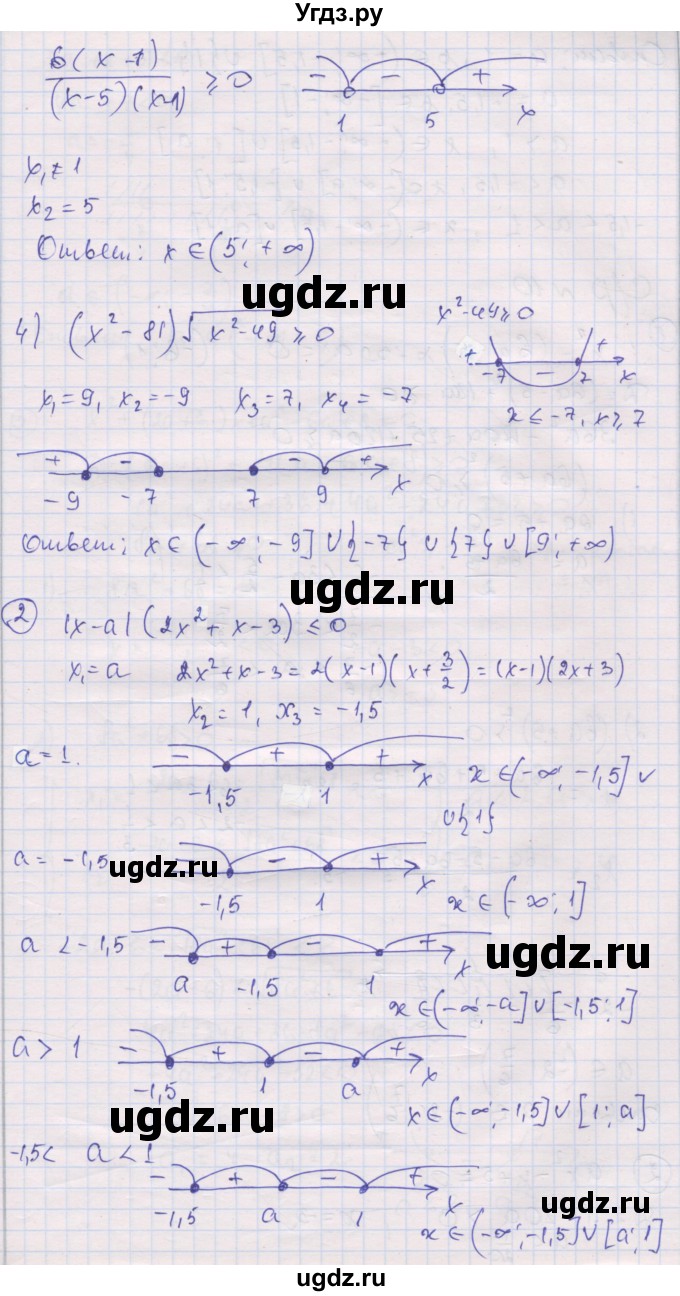 Угдз.ру
6(x-1)/(x-5)(x-1) ⩾ 0
- - +
1 5 x
x₁ ≠ 1
x₂ = 5
Ответ: x ∈ (5; +∞)
ugdz.ru
4) (x²-81)√x²-49 ⩾ 0
x²-49⩾0
+ - +
-7 7 x
x ≤ -7, x ⩾ 7
x₁=9, x₂=-9 x₃=7, x₄=-7
+ - - +
-9 -7 7 9 x
Ответ: x ∈ (-∞; -9] ∪ {-7} ∪ {7} ∪ [9; +∞)
ugdz.ru
2 |x-a|(2x²+x-3) ≤ 0
x₁=a 2x²+x-3=2(x-1)(x+3/2)=(x-1)(2x+3)
x₂=1, x₃=-1,5
a=1.
- + +
-1,5 1 x
x ∈ (-∞; -1,5] ∪
∪{1}
a=-1,5
ugdz.ru
- - +
-1,5 1 x
x ∈ (-∞; 1]
a < -1,5
- + - +
a -1,5 1 x
ugdz.ru
x ∈ (-∞; -a] ∪ [-1,5; 1]
a > 1
- + - +
-1,5 1 a x
ugdz.ru
x ∈ (-∞; -1,5] ∪ [1; a]
-1,5 < a < 1
- + - +
-1,5 a 1 x
ugdz.ru
x ∈ (-∞; -1,5] ∪ [a; 1]
ugdz.ru